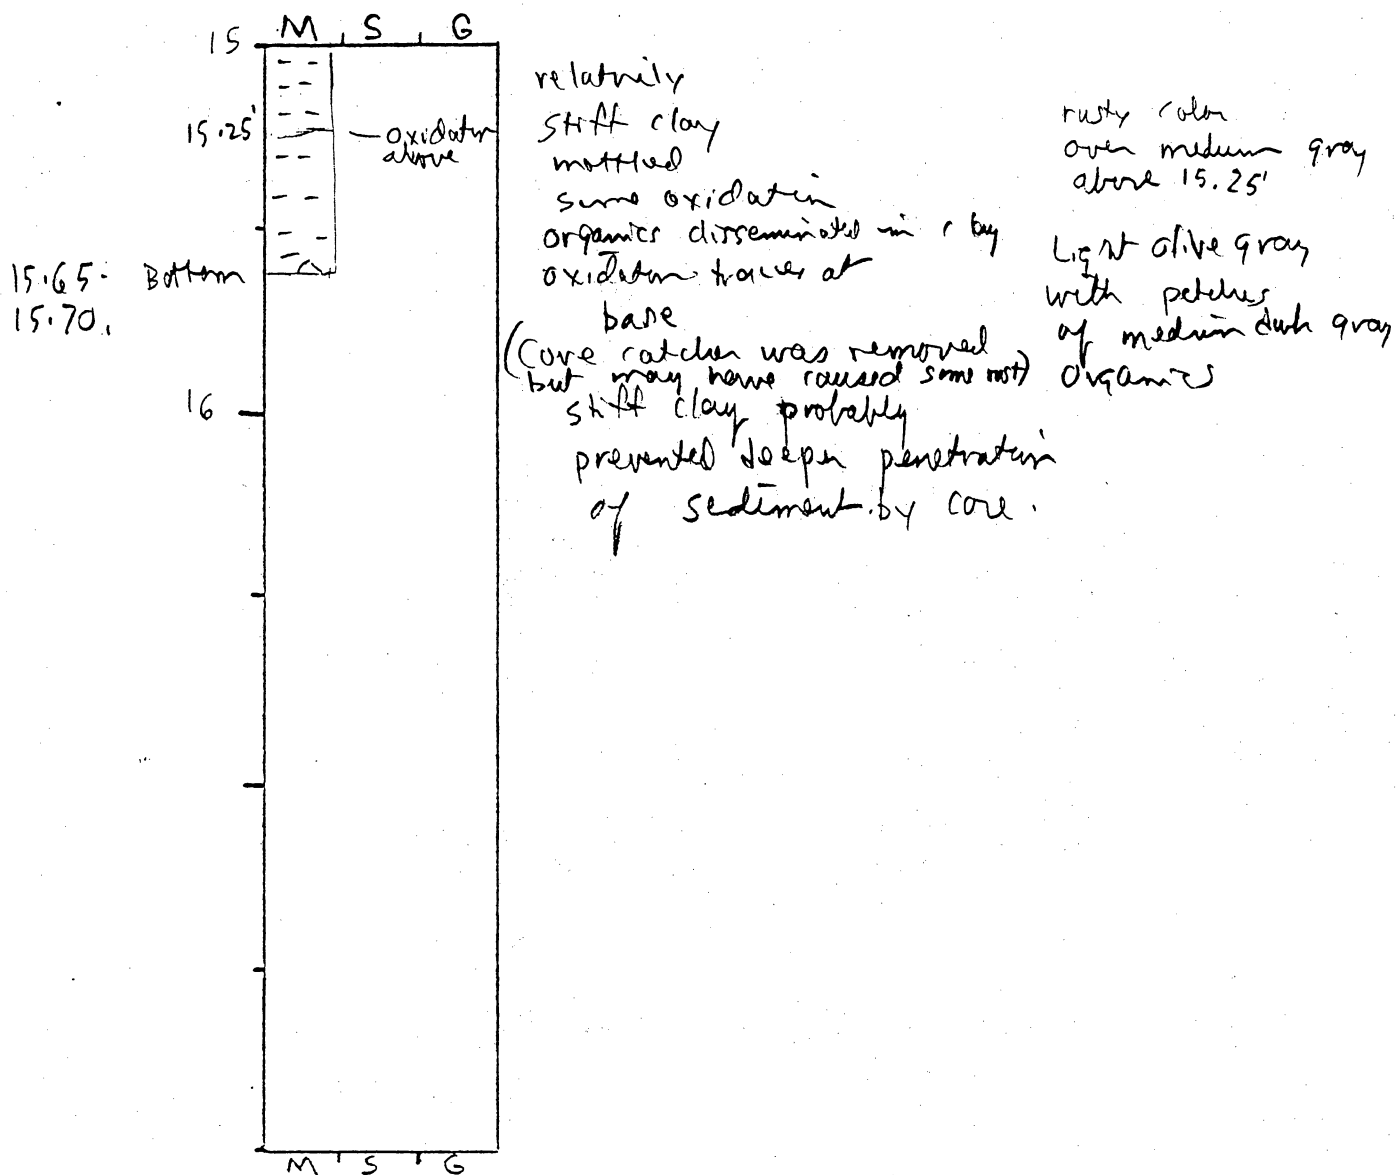 M S G
15
15.25' — oxidation
above
15.65- Bottom
15.70.
16
relatively
stiff clay
mottled
some oxidation
organics disseminated in clay
oxidation traces at
base
(Core catcher was removed
but may have caused some rust)
stiff clay probably
prevented deeper penetration
of sediment by core.
rusty color
over medium gray
above 15.25'
Light olive gray
with patches
of medium dark gray
organics
M S G